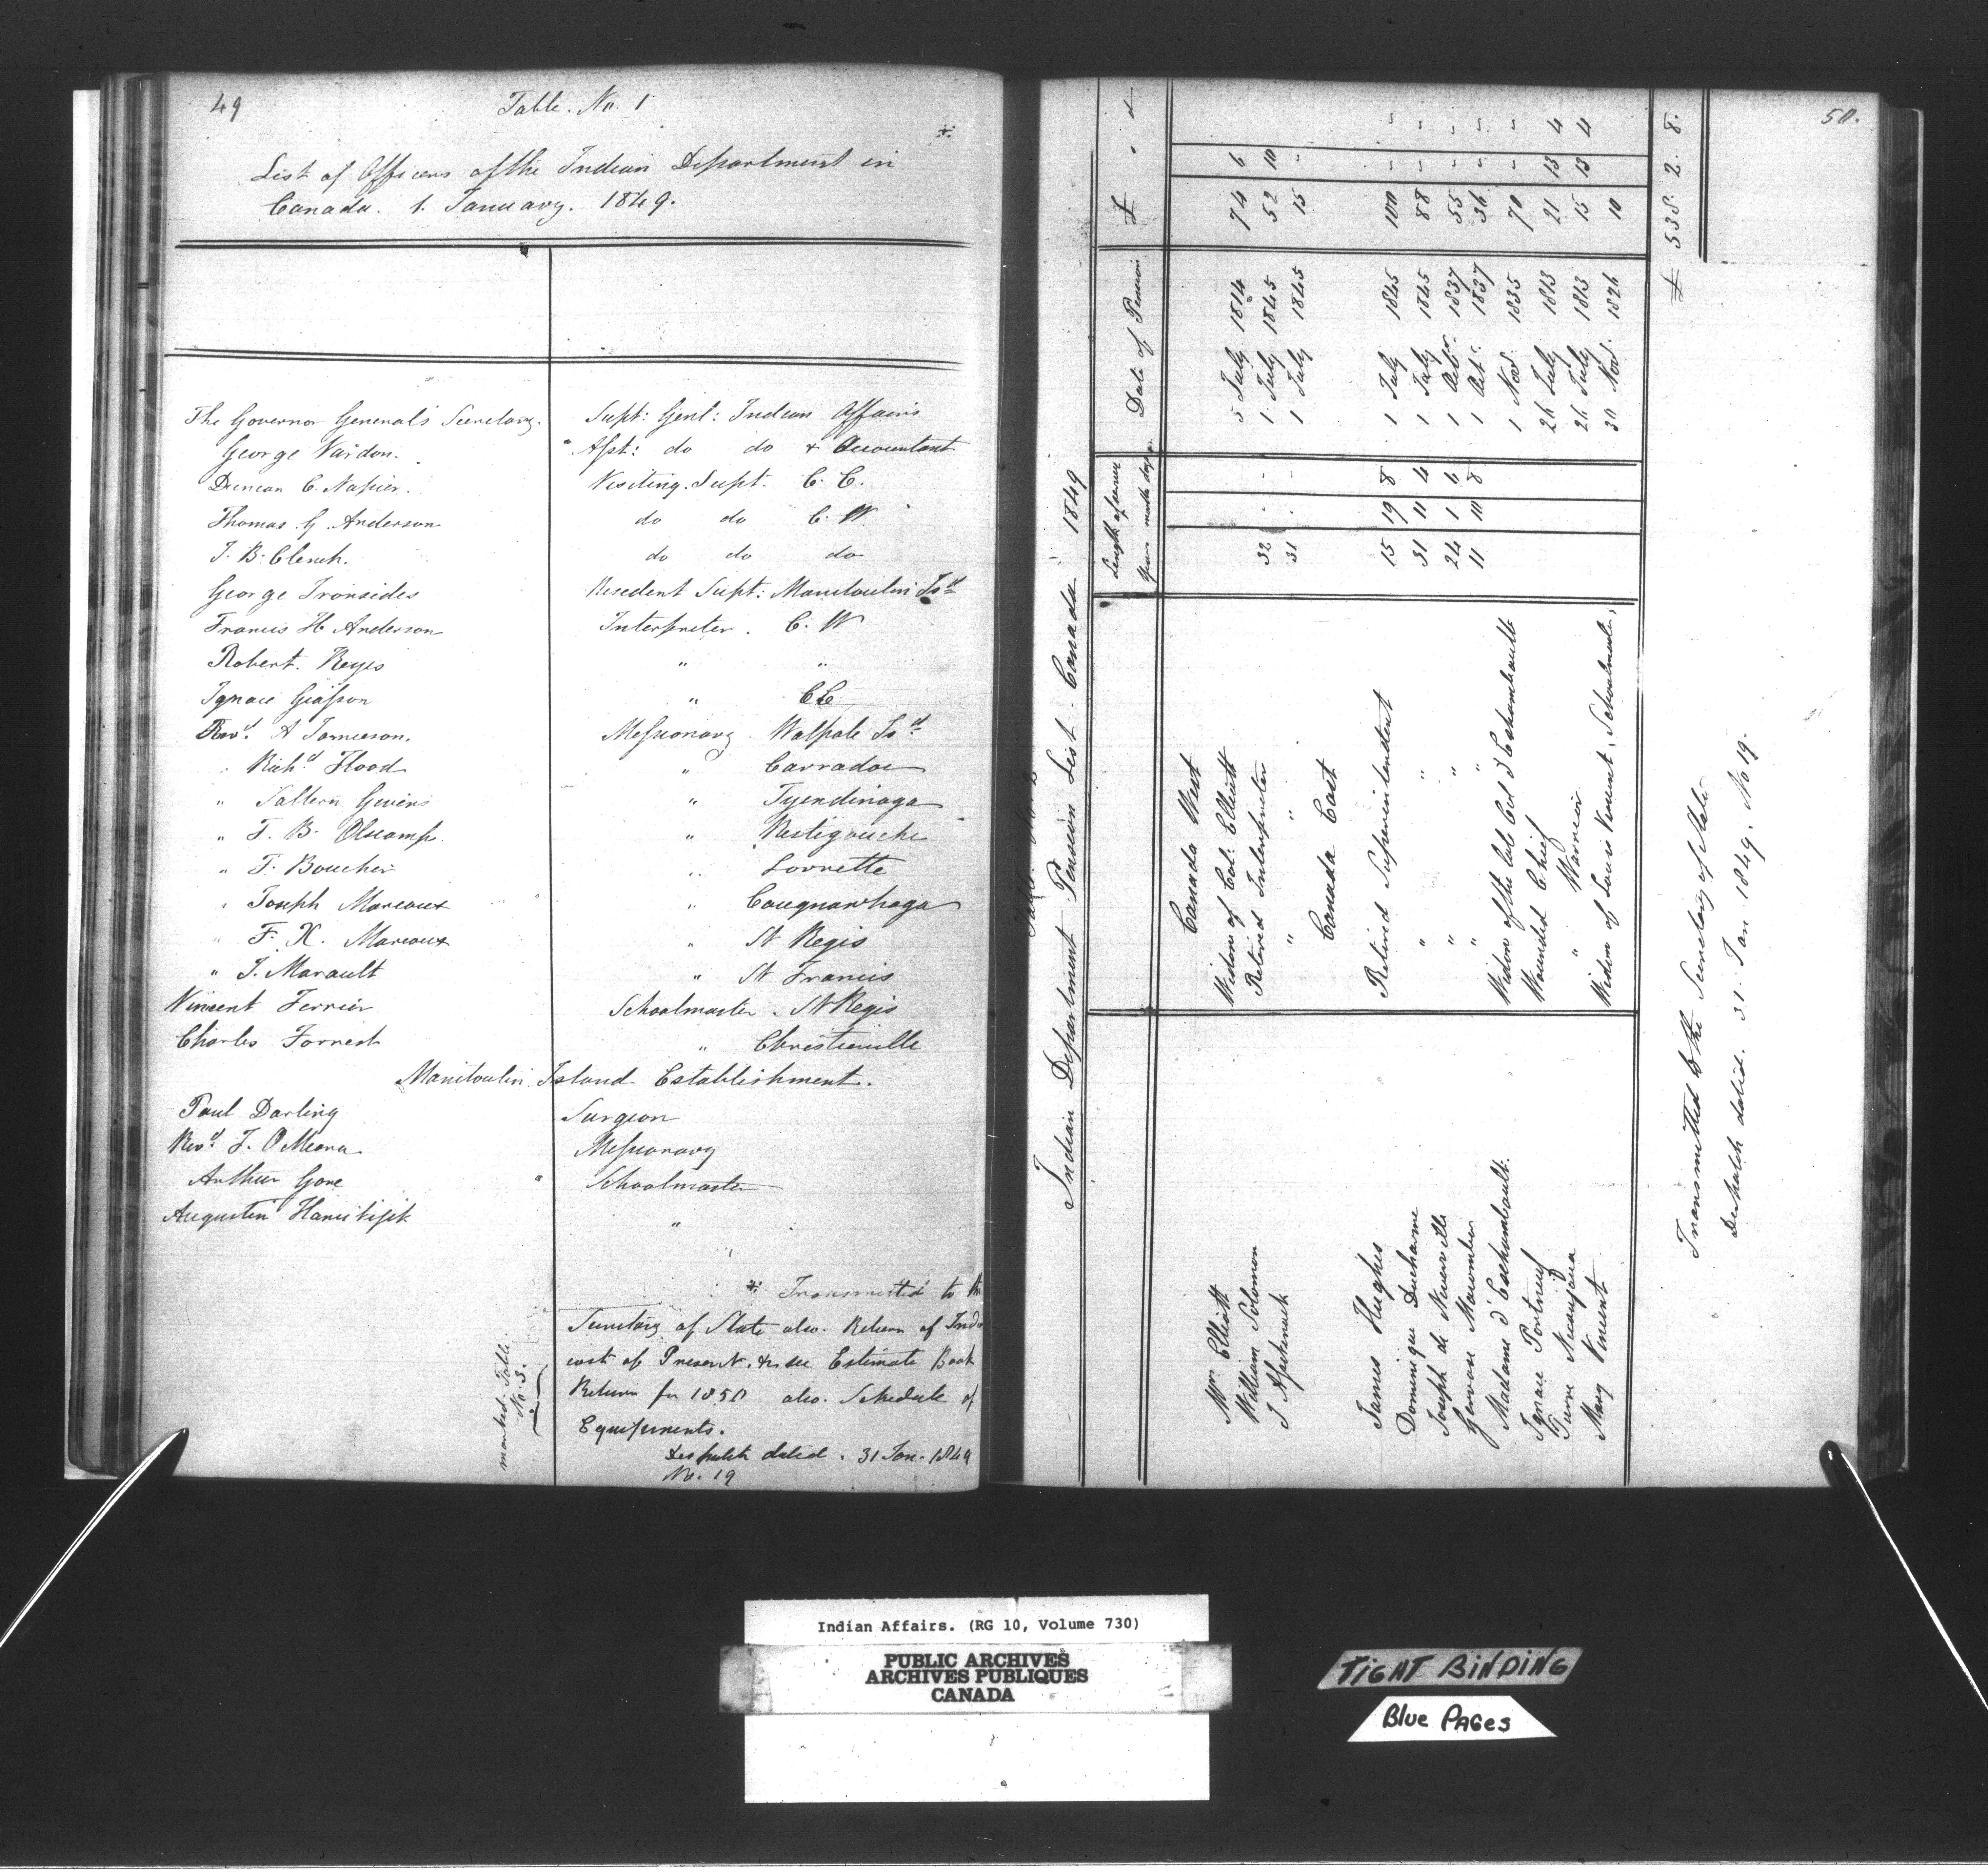 49
Table. No. 1
List of Officers of the Indian Department in
Canada. 1. January. 1849.
The Governor General's Secretary. Supt: Genl: Indian Affairs
George Vardon. Asst: do do & Accountant
Duncan C. Napier. Visiting Supt. C. E.
Thomas G. Anderson do do C. W
J. B. Clench. do do do
George Ironsides Resident Supt: Manitoulin Isd
Francis H Anderson Interpreter. C. W
Robert. Keyes " "
Ignace Giasson " C E
Revd. A Jamieson. Missionary. Walpole Isd
" Richd Flood " Carradoc
" Saltern Givins " Tyendinaga
" F. B. Olscamp " Restigouche
" F. Boucher " Lorrette
" Joseph Marcoux " Caugnawhaga
" F. X. Marcoux " St Regis
" J. Marault " St Francis
Vincent Ferrier Schoolmaster. St Regis
Charles Forrest " Christieville
Manitoulin Island Establishment.
Paul Darling Surgeon
Revd. F. O Meara Missionary
Arthur Gore Schoolmaster
Augustin "
Transmitted to the
Secretary of State also. Return of
cost of Presents. & see Estimate Book
Return for 1850 also. Schedule of
Equipments.
Despatch dated. 31 Jan. 1849
No. 19
marked. Table.
No. 3.
50.
Indian Department Pension List. Canada 1849
Length of service Date of Pension £
years month days
Canada West
Mrs. Elliott Widow of Col: Elliott 5 July 1814 74 6
William Solomon Retired Interpreter 32 - - 1 July 1845 52 10
J Assekinack " " 31 - - 1 July 1845 15 -
Canada East
James Hughes Retired Superintendent 15 19 8 1 July 1845 100 - -
Dominique Ducharme " " 31 11 4 1 July 1845 88 - -
Joseph de Niverville " " 24 1 6 1 Octbr 1837 55 - -
Gervase Macomber " " 11 10 8 1 Oct. 1837 36 - -
Madame d'Eschambault. Widow of the late Col d'Eschambault 1 Nov. 1835 70 - -
Ignace Portneuf Wounded Chief 26 July 1813 21 13 4
Pierre " Warrior 26 July 1813 15 13 4
Mary Vincent Widow of Louis Vincent, Schoolmaster. 30 Nov. 1826 10
£ 538. 2. 8.
Transmitted to the Secretary of State
Despatch dated. 31. Jan 1849. No 19.
Indian Affairs. (RG 10, Volume 730)
PUBLIC ARCHIVES
ARCHIVES PUBLIQUES
CANADA
TIGHT BINDING
Blue PAGES